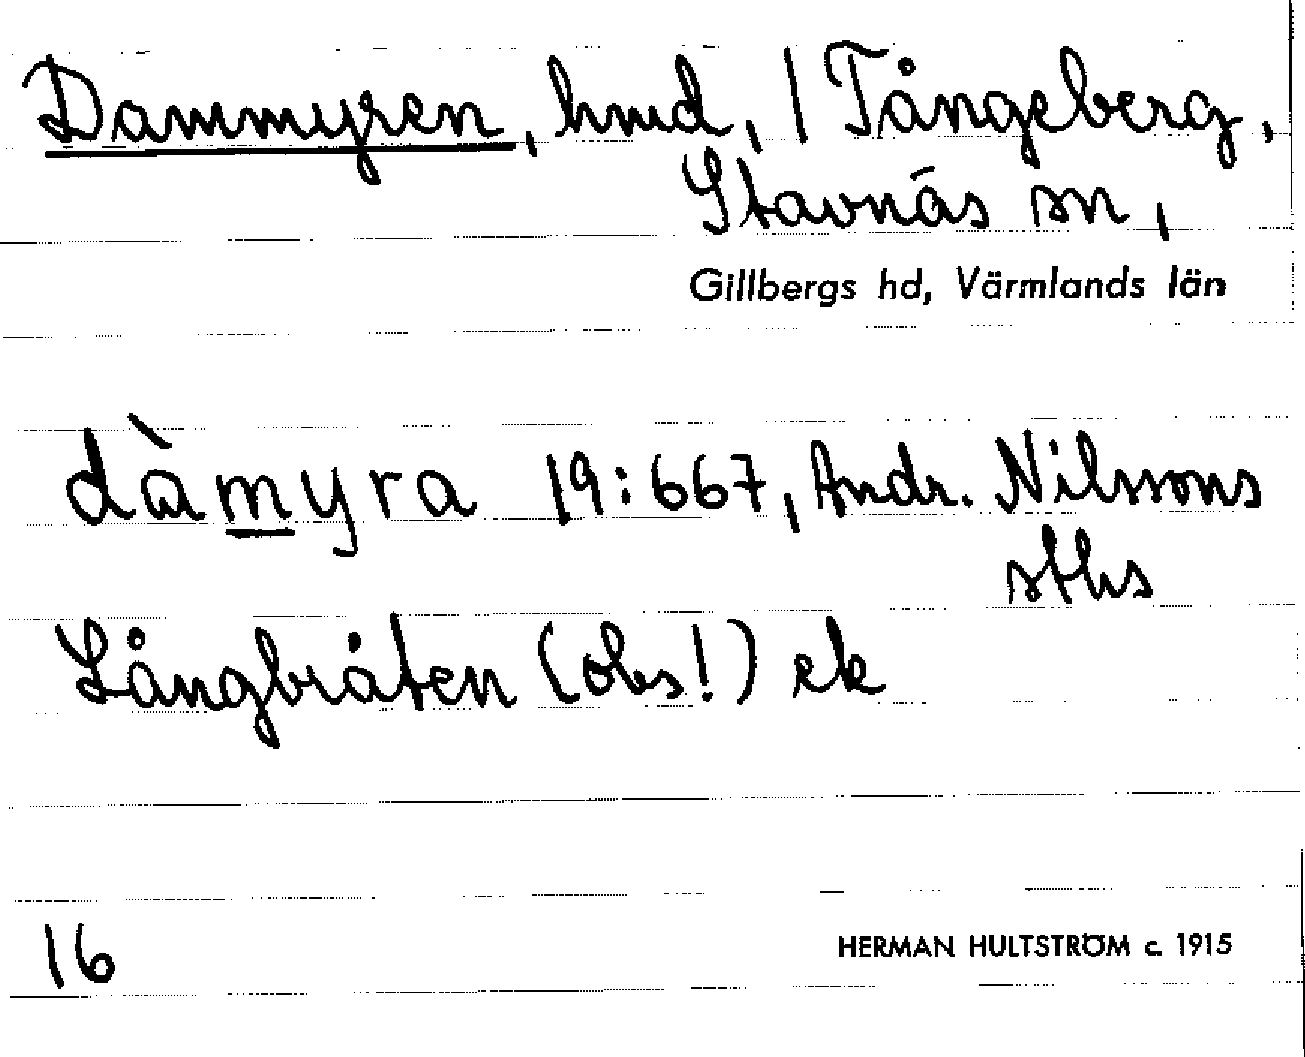 Dammyren, hmd, / Tångeberg,
Stavnäs sn,
Gillbergs hd, Värmlands län
dàmyra 19:667, Andr. Nilssons
sths
Långbråten (obs!) ek
16
HERMAN HULTSTRÖM c. 1915